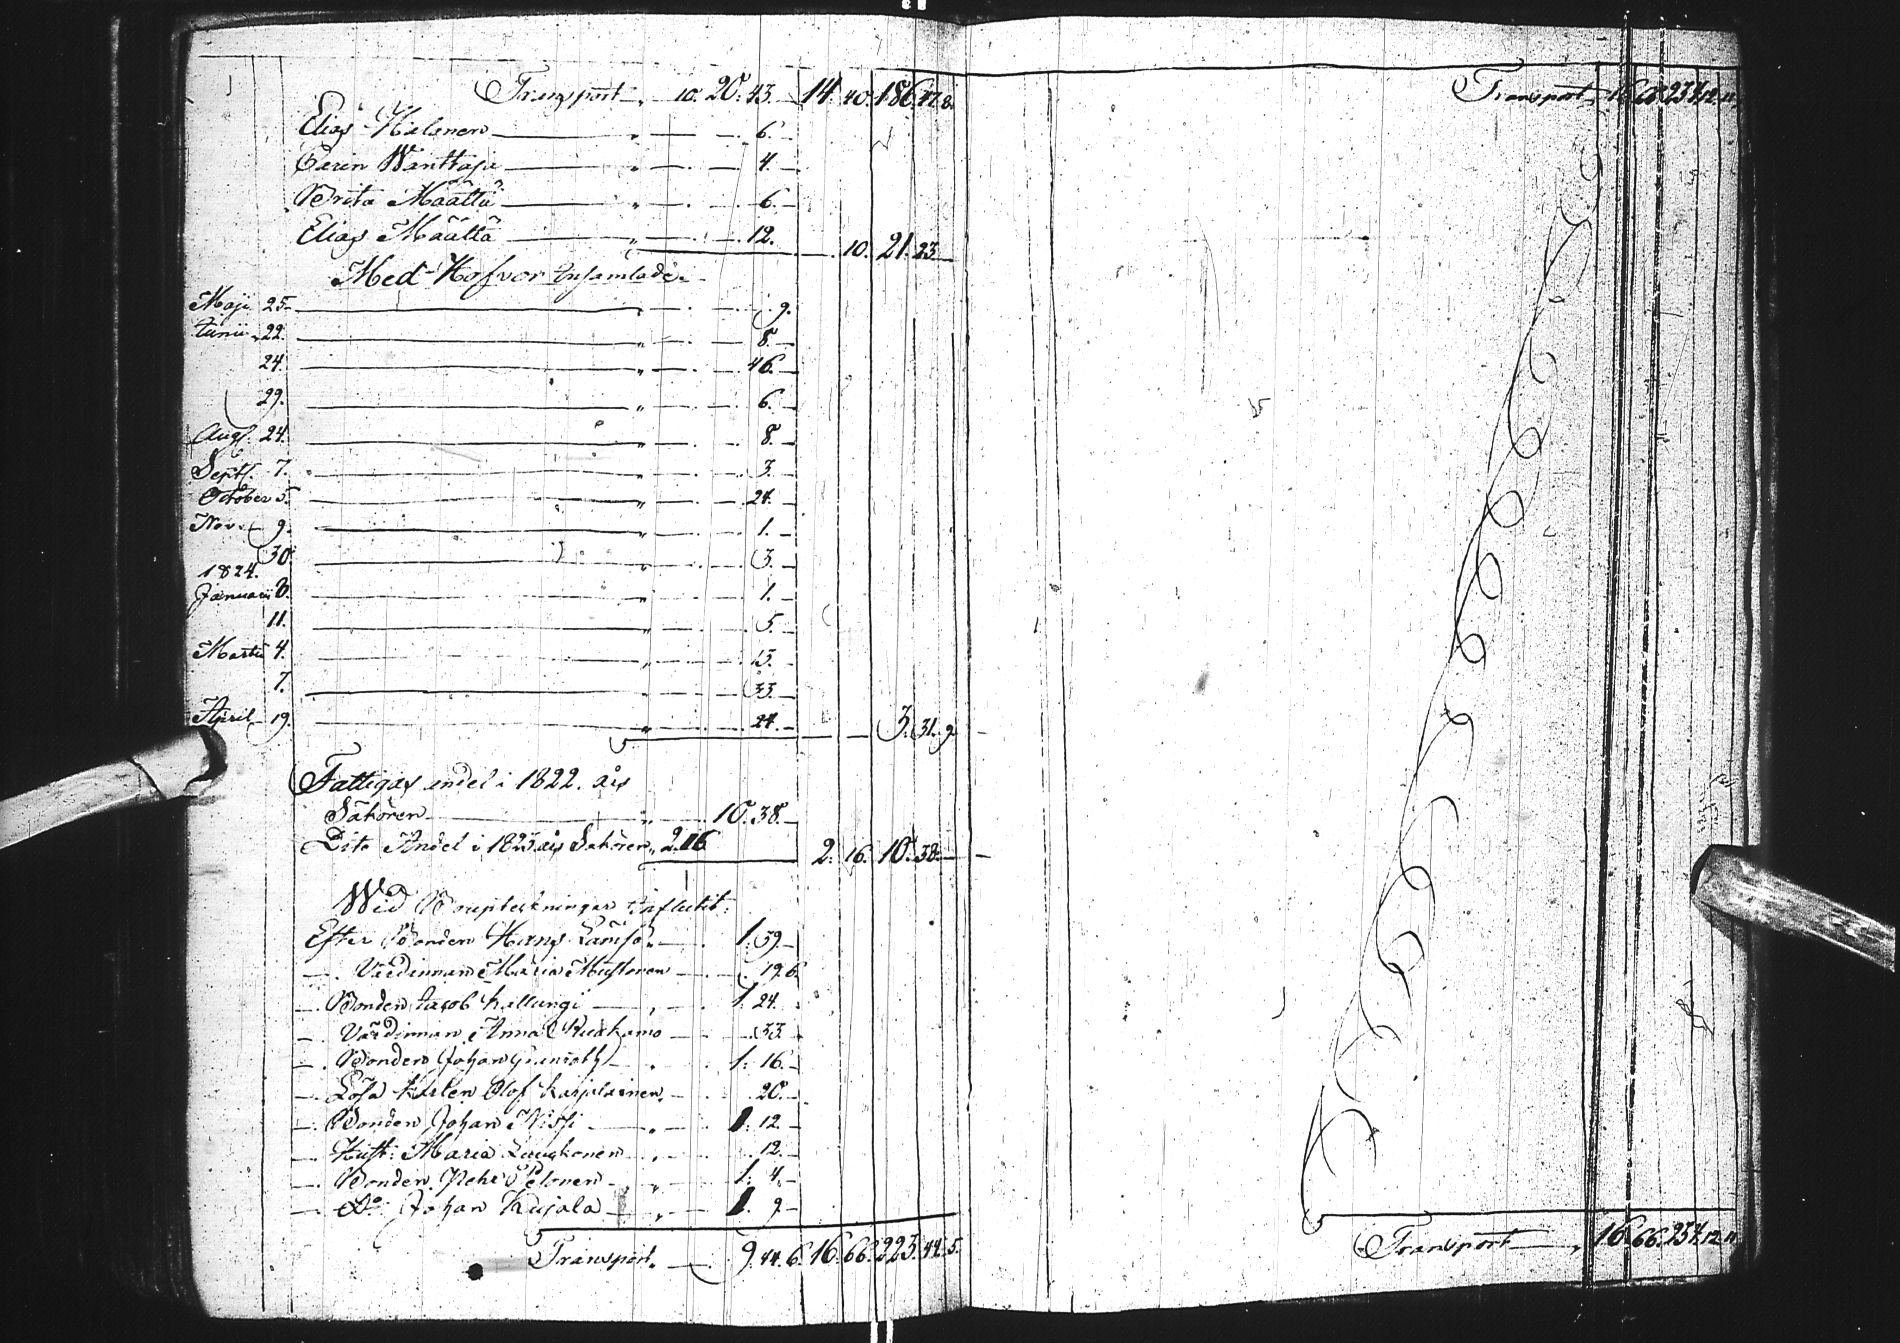 Transport 10. 20. 43. 14. 40. 186. 47. 8.
Elias Halonen 6.
Carin Wänttäjä 4.
Brita Määttä 6.
Elias Määttä 12. 10. 21. 23.
Med Hofvor Insamlade
Maji 25. 9.
Junii 22. 8.
24. 46.
29. 6.
Aug. 24. 8.
Sept. 7. 3.
October 5. 24.
Nov. 9. 1.
30. 3.
1824.
Januarii 1.
11. 5.
Martii 4. 15.
7. 33.
April 19. 24. 3. 31. 9.
Fattigas andel i 1822. års
Sakören 10. 38.
Dito Andel i 1823 års Sakören 2. 16. 2. 16. 10. 38.
Wid Bouptekningar influtit:
Efter Bonden Hans Lämsä 1. 39.
Värdinnan Maria Mustonen 19. 6
Bonden Jacob Kallungi 1. 24.
Värdinnan Anna Kurkamo 33.
Bonden Johan 1. 16.
Lösa Karlen Olof Karjalainen 20.
Bonden Johan Nissi 1. 12.
Hust. Maria Laukonen 12.
Bonden Pehr Pelonen 1. 4.
Do Johan Kujala 1. 9.
Transport 9. 44. 6. 16. 66. 223. 44. 5.
Transport 16. 66. 234. 12. 11.
Transport 16. 66. 234. 12. 11.